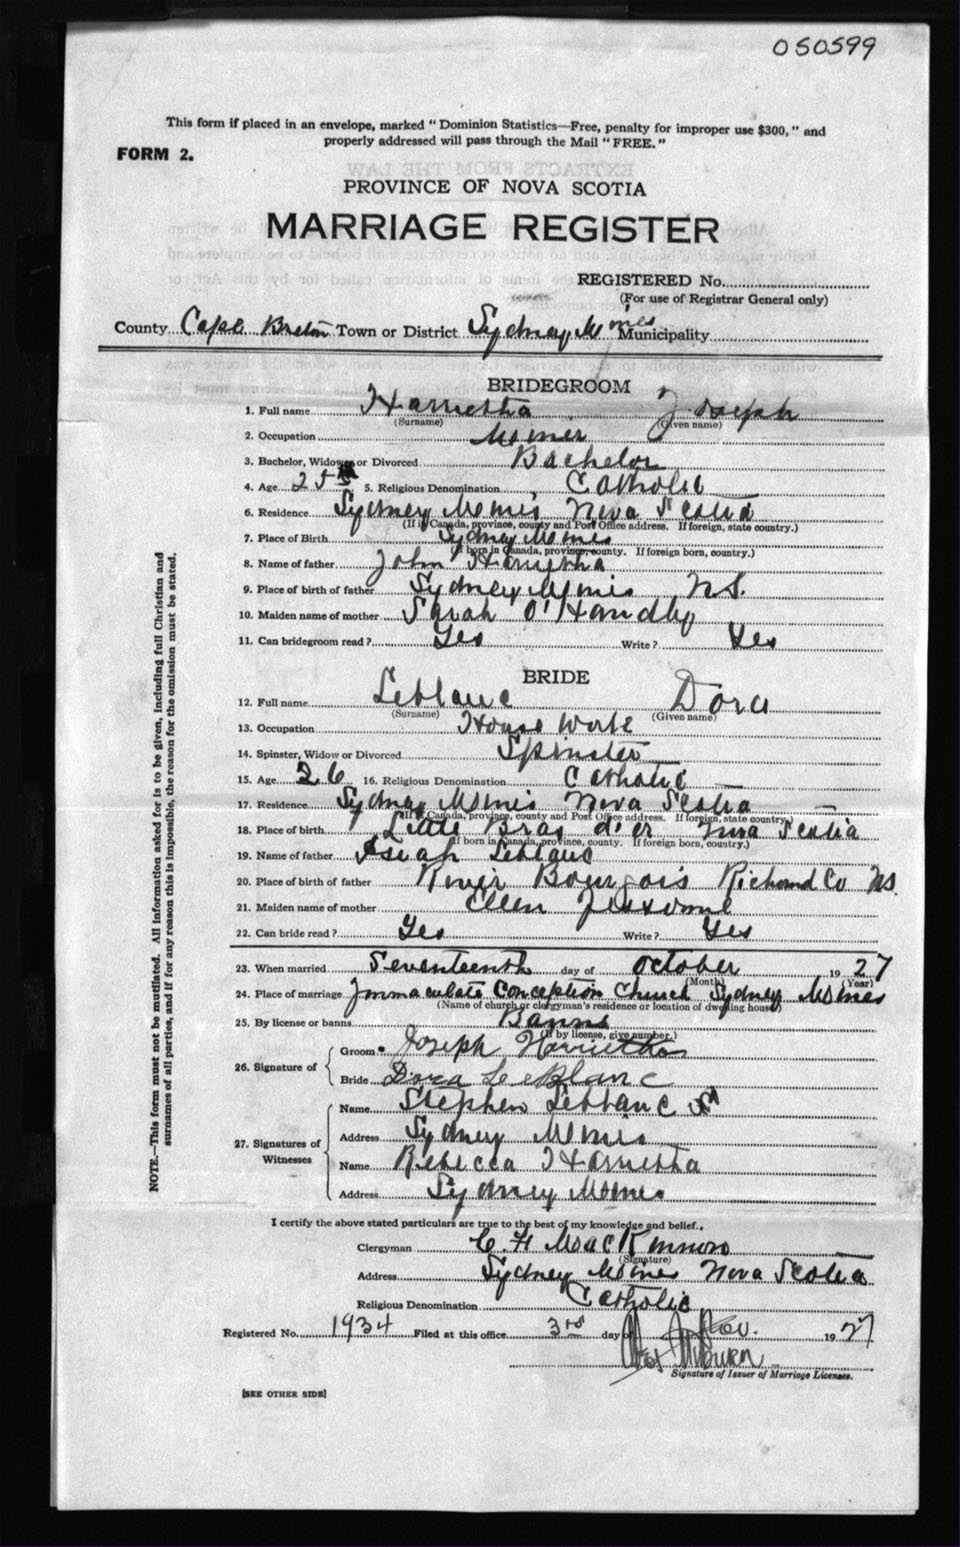 050599
This form if placed in an envelope, marked "Dominion Statistics—Free, penalty for improper use $300," and
properly addressed will pass through the Mail "FREE."
FORM 2.
PROVINCE OF NOVA SCOTIA
MARRIAGE REGISTER
REGISTERED No.
(For use of Registrar General only)
County Cape Breton Town or District Sydney Mines Municipality
BRIDEGROOM
1. Full name Harrietha Joseph
(Surname) (Given name)
2. Occupation Miner
3. Bachelor, Widower or Divorced Bachelor
4. Age 25 5. Religious Denomination Catholic
6. Residence Sydney Mines Nova Scotia
(If in Canada, province, county and Post Office address. If foreign, state country.)
7. Place of Birth Sydney Mines
(If born in Canada, province, county. If foreign born, country.)
8. Name of father John Harrietha
9. Place of birth of father Sydney Mines N.S.
10. Maiden name of mother Sarah O'Handley
11. Can bridegroom read? Yes Write? Yes
BRIDE
12. Full name Leblanc Dora
(Surname) (Given name)
13. Occupation House Work
14. Spinster, Widow or Divorced Spinster
15. Age 26 16. Religious Denomination Catholic
17. Residence Sydney Mines Nova Scotia
(If in Canada, province, county and Post Office address. If foreign, state country.)
18. Place of birth Little Bras d'or Nova Scotia
(If born in Canada, province, county. If foreign born, country.)
19. Name of father Leblanc
20. Place of birth of father River Bourgois Richmond Co N.S.
21. Maiden name of mother Ellen
22. Can bride read? Yes Write? Yes
23. When married Seventeenth day of October 1927
(Month) (Year)
24. Place of marriage Immaculate Conception Church Sydney Mines
(Name of church or clergyman's residence or location of dwelling house)
25. By license or banns Banns
(If by license, give number.)
26. Signature of
Groom Joseph Harrietha
Bride Dora LeBlanc
27. Signatures of Witnesses
Name Stephen Leblanc
Address Sydney Mines
Name Rebecca Harrietha
Address Sydney Mines
I certify the above stated particulars are true to the best of my knowledge and belief.
Clergyman C. H. MacKinnon
(Signature)
Address Sydney Mines Nova Scotia
Religious Denomination Catholic
Registered No. 1934 Filed at this office 3rd day of Nov. 1927
Signature of Issuer of Marriage Licenses.
[SEE OTHER SIDE]
NOTE.—This form must not be mutilated. All information asked for is to be given, including full Christian and
surnames of all parties, and if for any reason this is impossible, the reason for the omission must be stated.